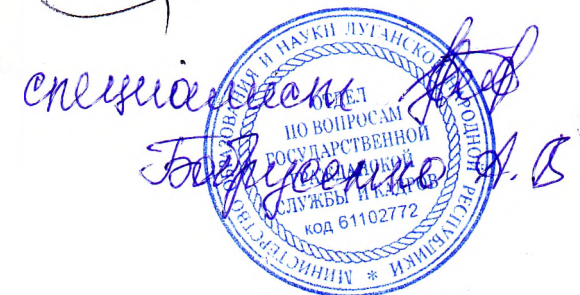 специалист
Бабрусенко А. В
МИНИСТЕРСТВО ОБРАЗОВАНИЯ И НАУКИ ЛУГАНСКОЙ НАРОДНОЙ РЕСПУБЛИКИ *
ОТДЕЛ
ПО ВОПРОСАМ
ГОСУДАРСТВЕННОЙ
ГРАЖДАНСКОЙ
СЛУЖБЫ И КАДРОВ
код 61102772